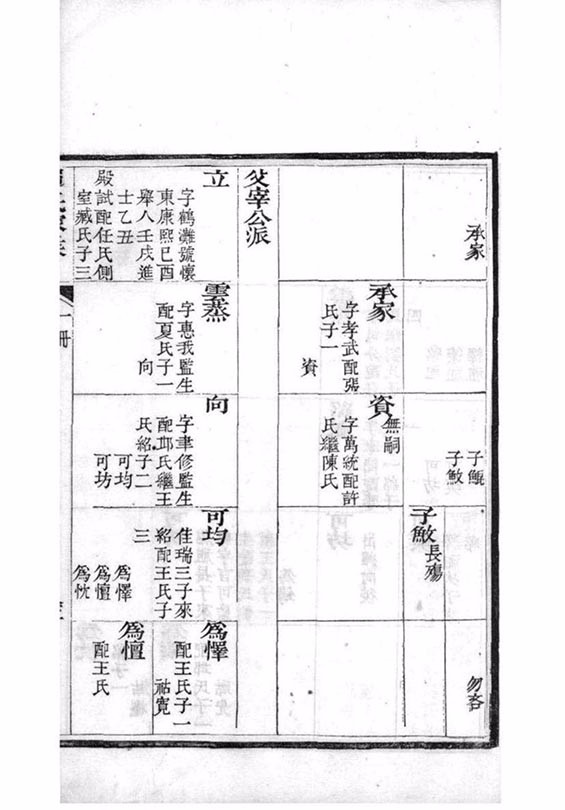 承家
子鯤
子敏
承家
字孝武配張
氏子一
資
資
無嗣
字萬統配許
氏繼陳氏
子敏
長殤
宰公派
立
字鶴灘號懷
東康熙己酉
舉人壬戌進
士乙丑
殿試配任氏側
室臧氏子三
雲蒸
字惠我監生
配夏氏子一
向
向
字聿修監生
配邱氏繼王
氏紹子二
可均
可坊
可均
佳瑞三子來
紹配王氏子
三
爲懌
爲憻
爲忱
爲懌
配王氏子一
祜寬
爲憻
配王氏
一冊